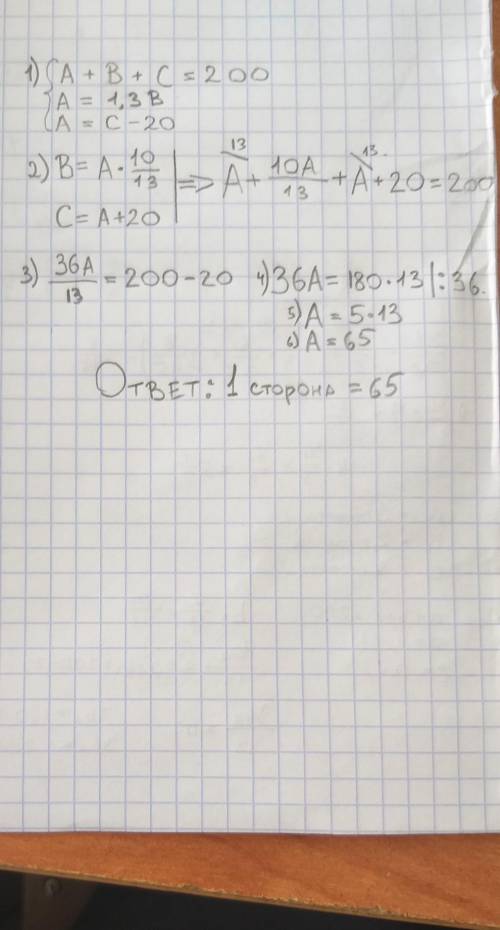 1) { A + B + C = 200
A = 1,3 B
A = C - 20
2) B = A · 10/13 | => A (13) + 10A/13 + A (13) + 20 = 200
C = A + 20
3) 36A/13 = 200 - 20 4) 36A = 180 · 13 | : 36.
5) A = 5 · 13
6) A = 65
Ответ: 1 сторона = 65